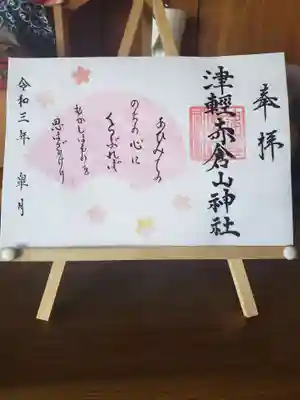 奉拝
津軽赤倉山神社
あひみての
のちの心に
くらぶれば
むかしはものを
思はざりけり
令和三年 皐月